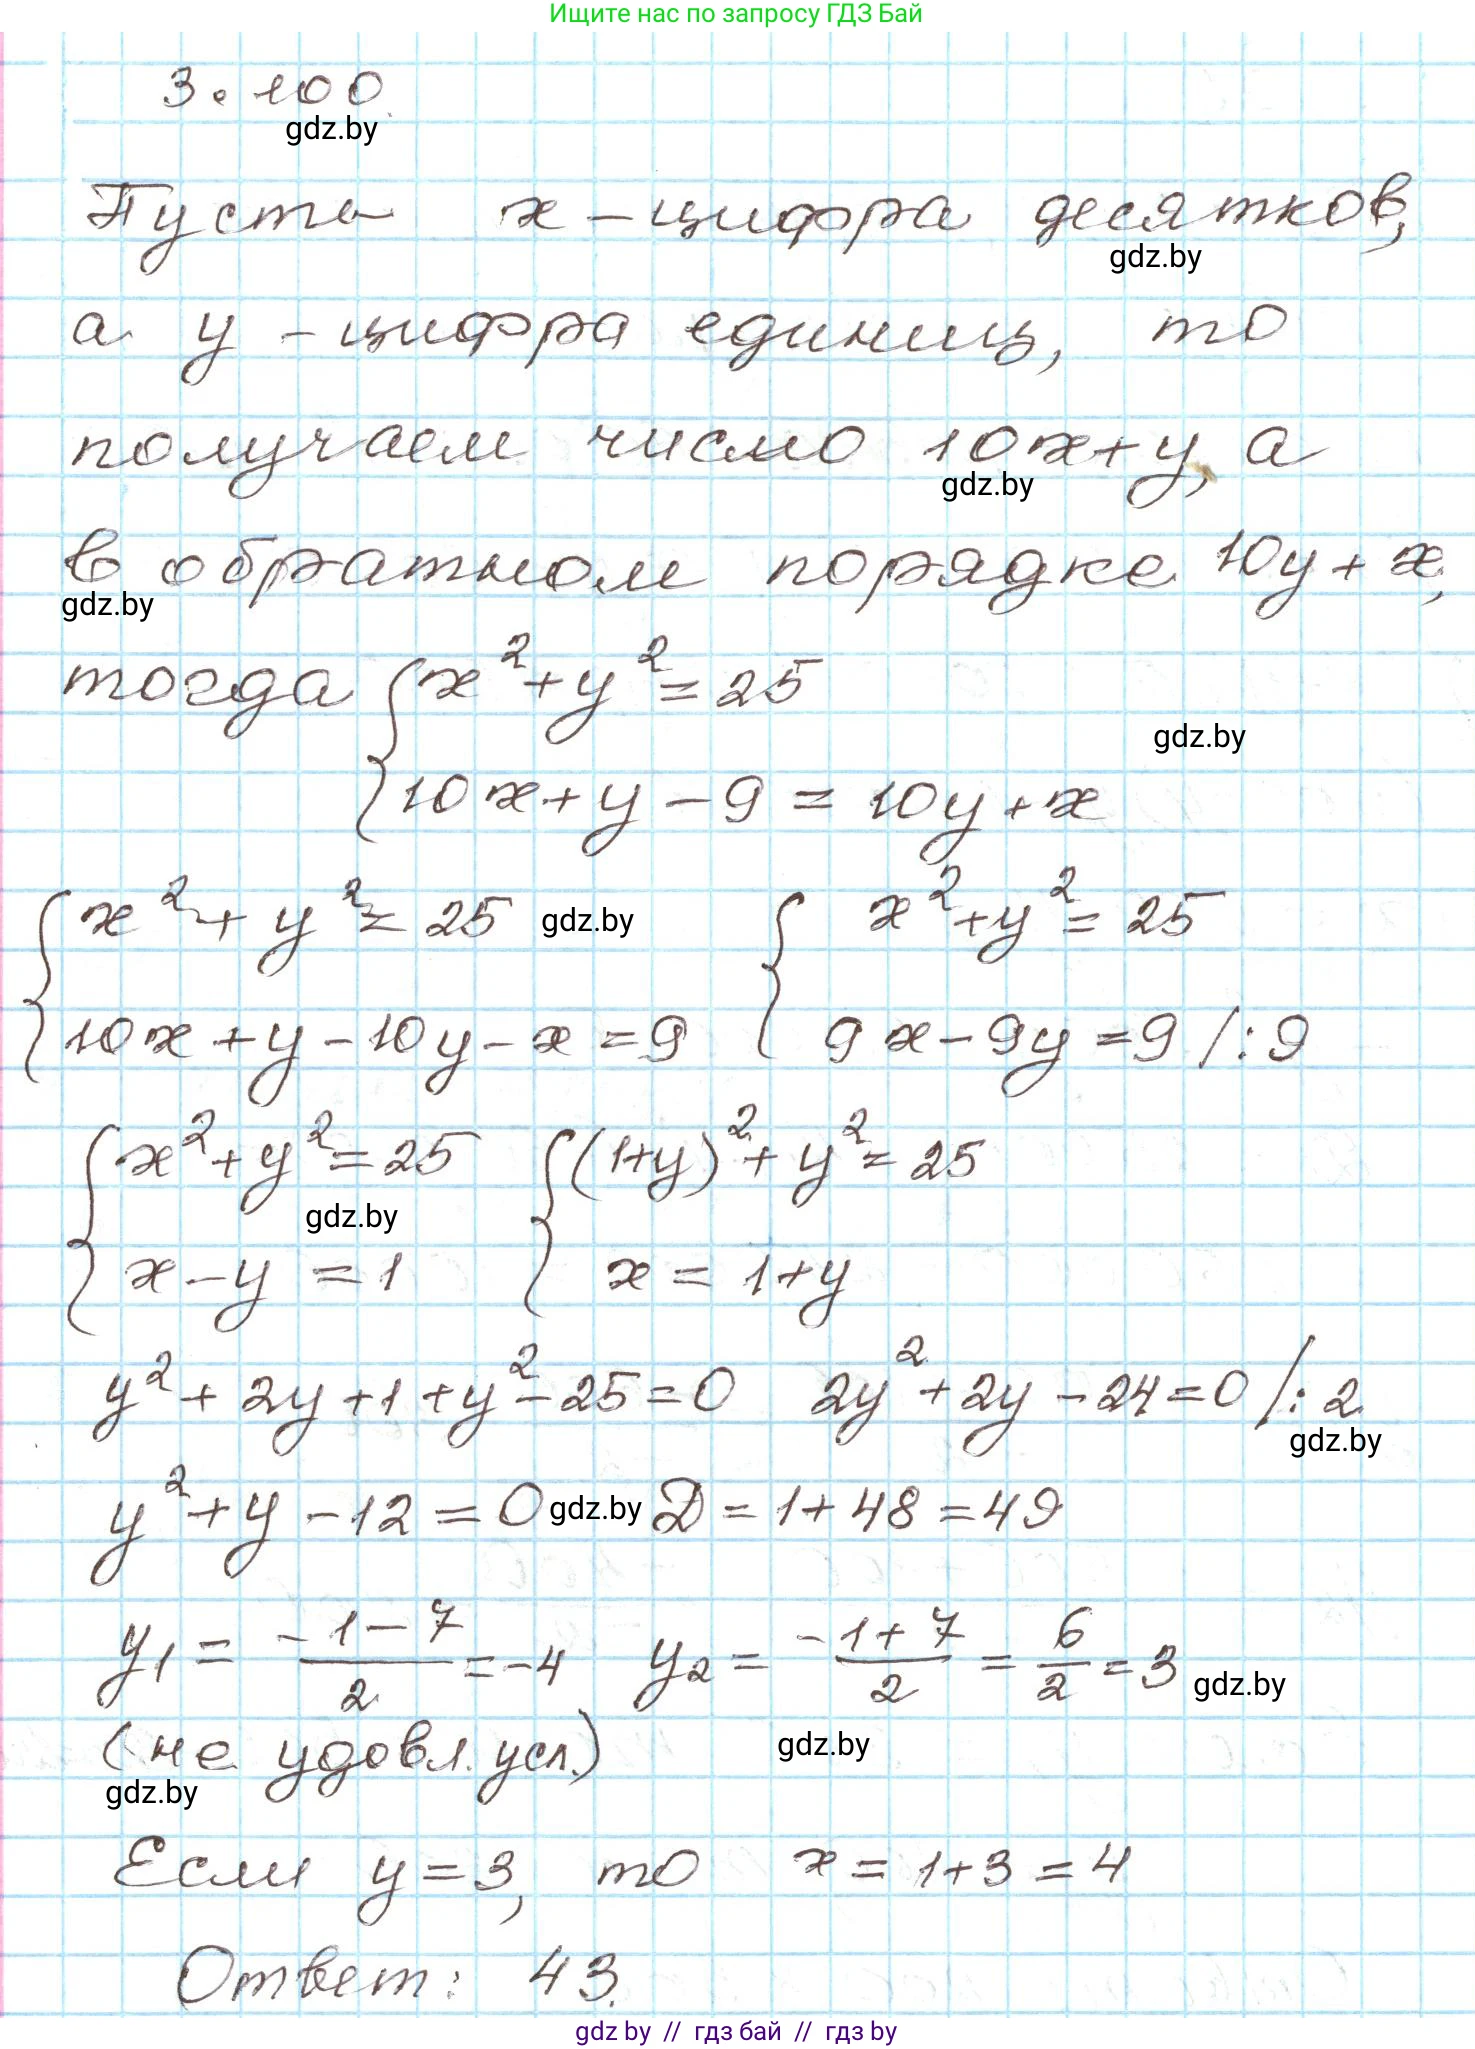 Ищите нас по запросу ГДЗ Бай
3.100
gdz.by
Пусть x – цифра десятков,
gdz.by
а y – цифра единиц, то
получаем число 10x+y, а
gdz.by
в обратном порядке 10y + x,
gdz.by
тогда { x² + y² = 25
gdz.by
10x + y – 9 = 10y + x
{ x² + y² = 25 gdz.by { x² + y² = 25
10x + y – 10y – x = 9 9x – 9y = 9 /:9
{ x² + y² = 25 { (1+y)² + y² = 25
gdz.by
x – y = 1 x = 1+y
y² + 2y + 1 + y² – 25 = 0 2y² + 2y – 24 = 0 /:2
gdz.by
y² + y – 12 = 0 gdz.by D = 1 + 48 = 49
y₁ = (–1–7)/2 = –4 y₂ = (–1+7)/2 = 6/2 = 3 gdz.by
(не удовл. усл.) gdz.by
gdz.by
Если y = 3, то x = 1+3 = 4
Ответ: 43.
gdz by // гдз бай // гдз by